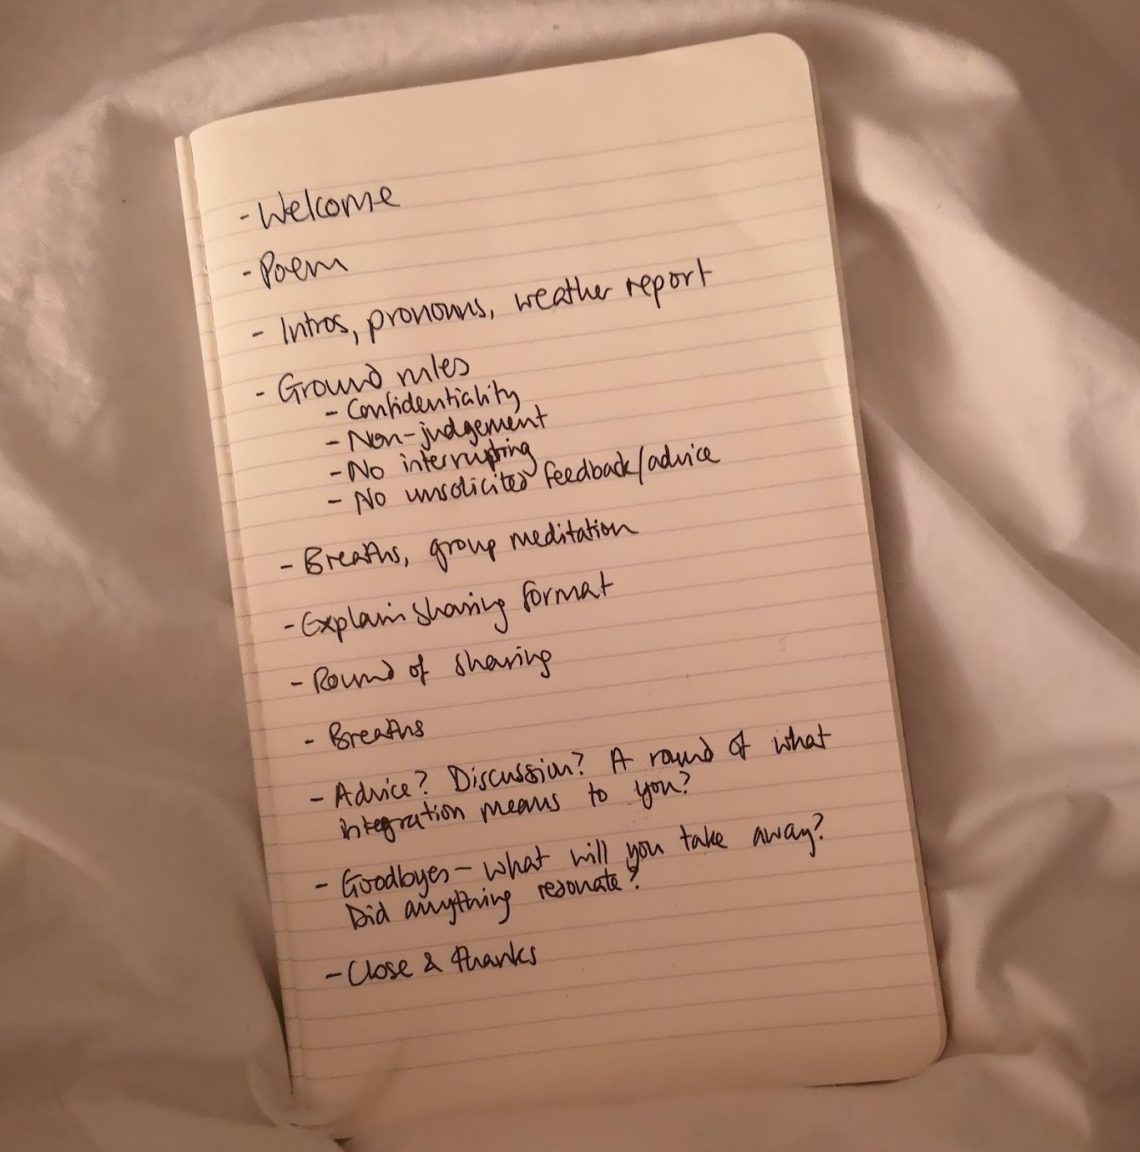 - Welcome
- Poem
- Intros, pronouns, weather report
- Ground rules
- Confidentiality
- Non-judgement
- No interrupting
- No unsolicited feedback/advice
- Breaths, group meditation
- Explain sharing format
- Round of sharing
- Breaths
- Advice? Discussion? A round of what
integration means to you?
- Goodbyes - what will you take away?
Did anything resonate?
- Close & thanks